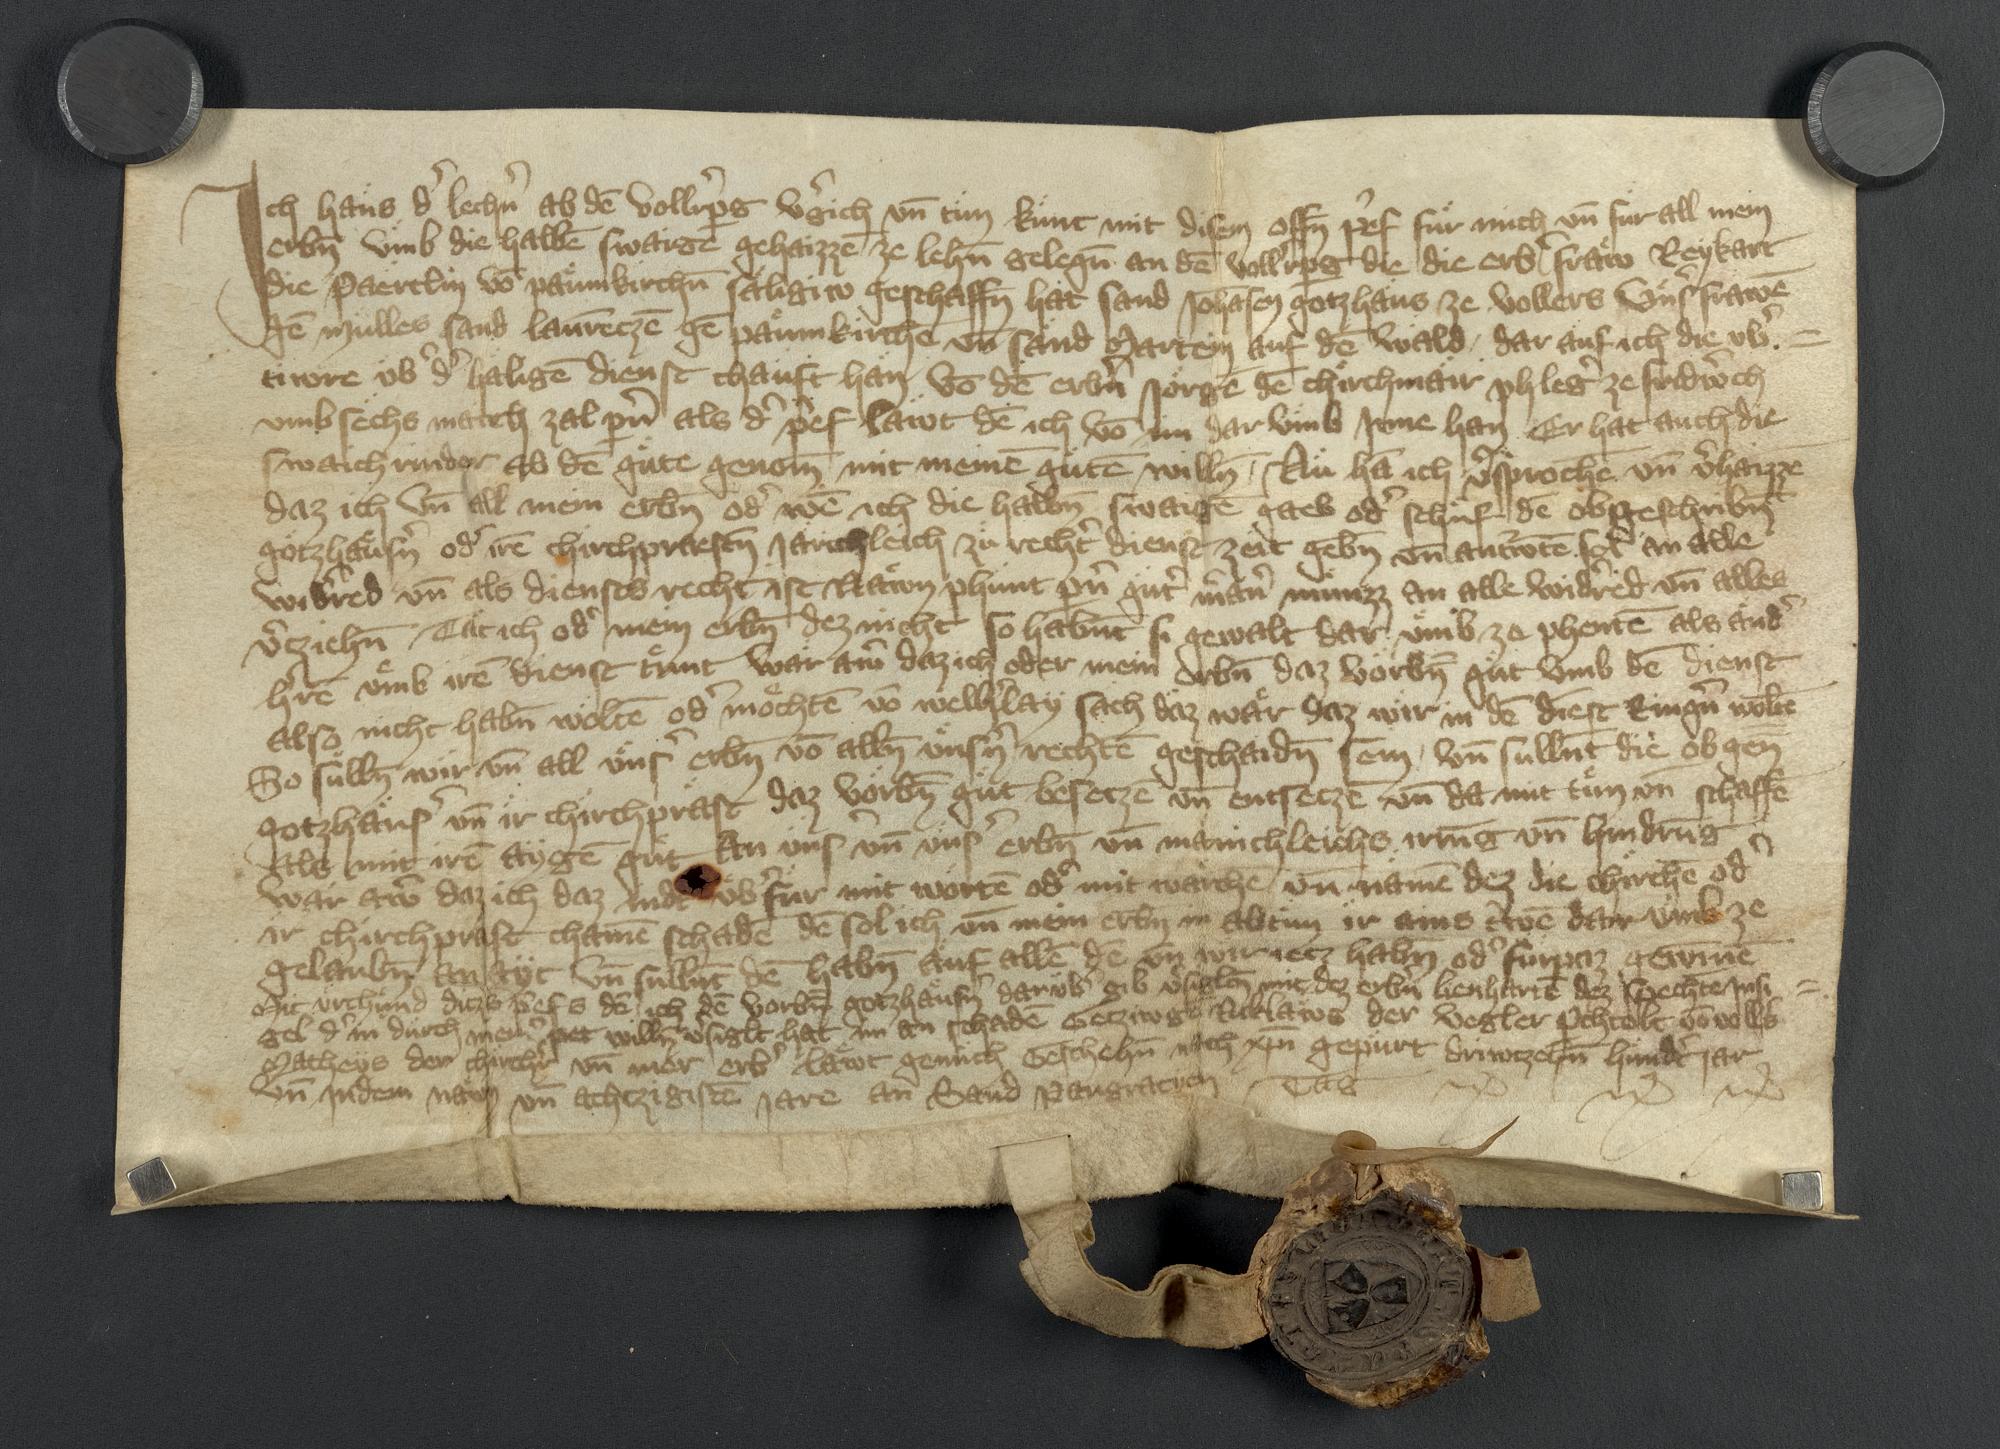 Ich hans d' lechn' ab dē vollr'pg v'gich vn̄ tün kunt mit disem offn̄ p'ef für mich vn̄ für all mein
erbn̄ vmb die halbē swaigē gehaizzē ze lehn̄ gelegn̄ an dē vollr'pg die die erb' fraw Reykart
die Paertlin vō paümkirchn̄ säligiw geschaffn̄ hat sand Johāsen gotzhäus ze vollers vns' frawē
gē mülles sand laurēczē gē paümkirchē vn̄ sand Martein auf dē wald dar auf ich die vb'
tiwre vb' d' häligē dienst chauft han vō dē erb'n Jörgē dē chirchmair phleg' ze fridb'ch
vmb sechs march zal p'n als d' p'ef lawt dē ich vō im dar vmb Inne han Er hat auch die
swaich rinder ab dē güte genom̄ mit meinē gütē willn̄ Nu hā ich v'sprochē vn̄ v'haizze
daz ich vn̄ all mein erbn̄ od' wē ich die halbn̄ swaigē gaeb od' schuf dē obgeschribn̄
gotzhäusn' od' irē chirchpraestn̄ järichleich zu recht' dienst zeit gebn̄ vn̄ antwtē sol an alle
wid'red vn̄ als diensts recht ist Näwn phunt p'n gut' m'an' münizz an alle wid'red vn̄ alles
v'cziehn̄ Tät ich od' mein erbn̄ dez nicht so habnt si gewalt dar vmb ze phentē als and'
h'rē vmb irē dienst tünt wär aw' daz ich oder mein erbn̄ daz vorbn̄ güt vmb dē dienst
also nicht habn̄ woltē od' möchtē vō welh'lay sach daz wär daz wir in dē diest Ringn' woltē
So sülln̄ wir vn̄ all vns' erbn̄ vō alln̄ vnsn' rechtē geschaidn̄ sein vn̄ sullnt die obgen̄
gotzhäus' vn̄ ir chirchpräst daz vorbn̄ güt beseczē vn̄ entseczē vn̄ da mit tün vn̄ schaffē
als mit irē aygē güt An vns vn̄ vns' erbn̄ vn̄ mänichleichs irrūg vn̄ hindrūg
wär aw' daz ich daz vb'für mit wortē od' mit warchē vn̄ nämē dez die chirchē od'
ir chirchpräst chainē schadē dē sol ich vn̄ mein erbn̄ in abtün ir ains t'wē dar vmb ze
gelaubn̄ an ayt vn̄ sullnt dē habn̄ auf allē dē vn̄ wir iecz habn̄ od' fürpaz gewinnē
Mit vrchund diczs p'efs dē ich dē vorbn̄ gotzhäusn' darüb' gib v'sigltn̄ mit dez erb'n lienhartē dez Spechtē Insi
gel d' in durch mein' pet willn̄ v'siglt hat im an schadē Geziwg Nicklaws der vegler p'chtolt vō voll's
Matheys der chirch' vn̄ mer erb' läwt genüch Geschehn̄ nach xp̄n gepurt driwtzehn̄ hünd't iar
vn̄ in dem näwn vn̄ achtzigistē iare an Sand Pangraczen Tag